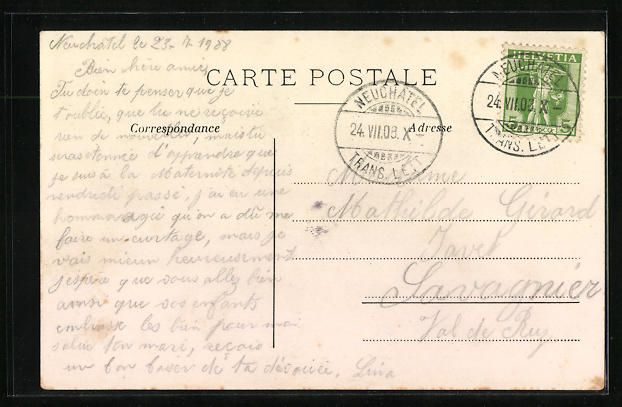 Neuchâtel le 23-7 1908
Bien chère amie,
Tu dois te penser que je
t'oublie, que tu ne reçoive
rien de nouvelles, mais tu
seras étonnée d'apprendre que
je suis à la Maternité depuis
vendredi passé, j'ai eu une
hommoragie qu'on a dû me
faire un curtage, mais je
vais mieux heureusement
j'espère que vous allez bien
ainsi que vos enfants
embrasse les bien pour moi
salue ton mari, reçois
un bon baser de ta dévouée. Lina
CARTE POSTALE
Correspondance
Adresse
NEUCHATEL
24.VII.08.X
TRANS. LETT
HELVETIA
5 5
NEUCHATEL
24.VII.08.X
TRANS. LETT
Madame
Mathilde Gérard
Javet
Savagnier
Val de Ruz